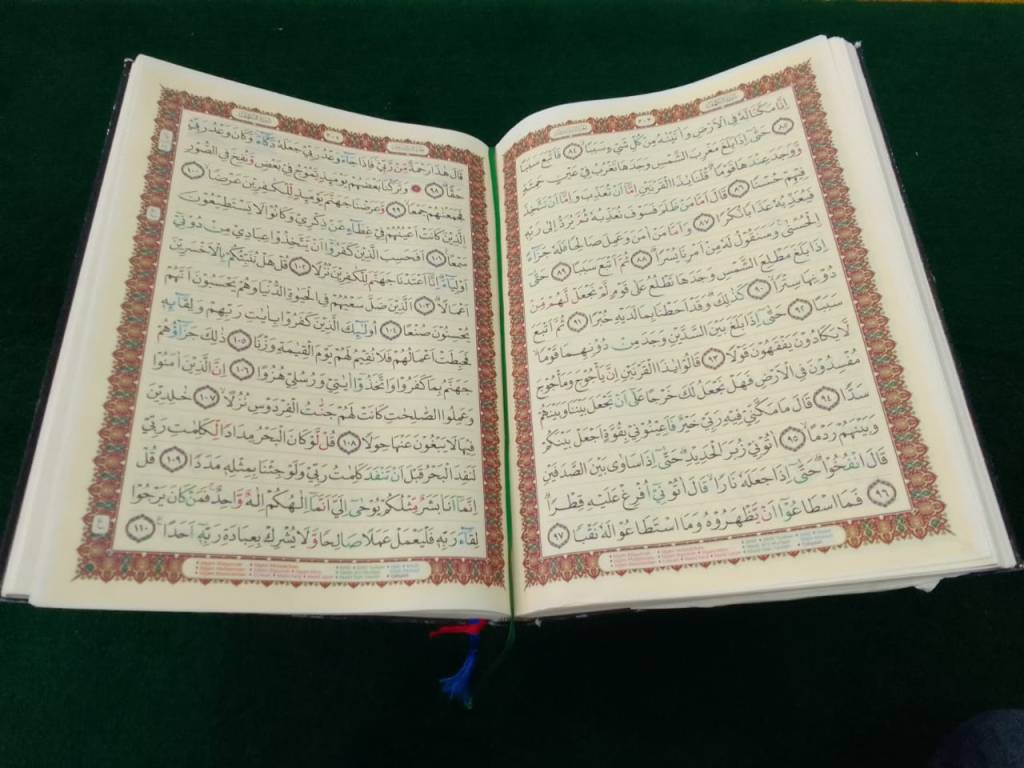 اِنَّا مَكَّنَّا لَهٗ فِى الْاَرْضِ وَاٰتَيْنٰهُ مِنْ كُلِّ شَيْءٍ سَبَبًا ۙ ٨٤ فَاَتْبَعَ سَبَبًا
٨٥ حَتّٰىٓ اِذَا بَلَغَ مَغْرِبَ الشَّمْسِ وَجَدَهَا تَغْرُبُ فِيْ عَيْنٍ حَمِئَةٍ
وَّوَجَدَ عِنْدَهَا قَوْمًا ەۗ قُلْنَا يٰذَا الْقَرْنَيْنِ اِمَّآ اَنْ تُعَذِّبَ وَاِمَّآ اَنْ تَتَّخِذَ
فِيْهِمْ حُسْنًا ٨٦ قَالَ اَمَّا مَنْ ظَلَمَ فَسَوْفَ نُعَذِّبُهٗ ثُمَّ يُرَدُّ اِلٰى رَبِّهٖ
فَيُعَذِّبُهٗ عَذَابًا نُّكْرًا ٨٧ وَاَمَّا مَنْ اٰمَنَ وَعَمِلَ صَالِحًا فَلَهٗ جَزَاۤءً
ۨالْحُسْنٰىۚ وَسَنَقُوْلُ لَهٗ مِنْ اَمْرِنَا يُسْرًا ٨٨ ثُمَّ اَتْبَعَ سَبَبًا ٨٩ حَتّٰىٓ
اِذَا بَلَغَ مَطْلِعَ الشَّمْسِ وَجَدَهَا تَطْلُعُ عَلٰى قَوْمٍ لَّمْ نَجْعَلْ لَّهُمْ مِّنْ
دُوْنِهَا سِتْرًا ٩٠ كَذٰلِكَۗ وَقَدْ اَحَطْنَا بِمَا لَدَيْهِ خُبْرًا ٩١ ثُمَّ اَتْبَعَ
سَبَبًا ٩٢ حَتّٰىٓ اِذَا بَلَغَ بَيْنَ السَّدَّيْنِ وَجَدَ مِنْ دُوْنِهِمَا قَوْمًاۙ
لَّا يَكَادُوْنَ يَفْقَهُوْنَ قَوْلًا ٩٣ قَالُوْا يٰذَا الْقَرْنَيْنِ اِنَّ يَأْجُوْجَ وَمَأْجُوْجَ
مُفْسِدُوْنَ فِى الْاَرْضِ فَهَلْ نَجْعَلُ لَكَ خَرْجًا عَلٰىٓ اَنْ تَجْعَلَ بَيْنَنَا وَبَيْنَهُمْ
سَدًّا ٩٤ قَالَ مَا مَكَّنِّيْ فِيْهِ رَبِّيْ خَيْرٌ فَاَعِيْنُوْنِيْ بِقُوَّةٍ اَجْعَلْ بَيْنَكُمْ
وَبَيْنَهُمْ رَدْمًا ٩٥ اٰتُوْنِيْ زُبَرَ الْحَدِيْدِۗ حَتّٰىٓ اِذَا سَاوٰى بَيْنَ الصَّدَفَيْنِ
قَالَ انْفُخُوْاۗ حَتّٰىٓ اِذَا جَعَلَهٗ نَارًاۙ قَالَ اٰتُوْنِيْٓ اُفْرِغْ عَلَيْهِ قِطْرًاۗ
٩٦ فَمَا اسْطَاعُوْٓا اَنْ يَّظْهَرُوْهُ وَمَا اسْتَطَاعُوْا لَهٗ نَقْبًا ٩٧
قَالَ هٰذَا رَحْمَةٌ مِّنْ رَّبِّيْۚ فَاِذَا جَاۤءَ وَعْدُ رَبِّيْ جَعَلَهٗ دَكَّاۤءَۚ وَكَانَ وَعْدُ رَبِّيْ
حَقًّا ٩٨ وَتَرَكْنَا بَعْضَهُمْ يَوْمَىِٕذٍ يَّمُوْجُ فِيْ بَعْضٍ وَّنُفِخَ فِى الصُّوْرِ
فَجَمَعْنٰهُمْ جَمْعًا ٩٩ وَّعَرَضْنَا جَهَنَّمَ يَوْمَىِٕذٍ لِّلْكٰفِرِيْنَ عَرْضًا ١٠٠
ۨالَّذِيْنَ كَانَتْ اَعْيُنُهُمْ فِيْ غِطَاۤءٍ عَنْ ذِكْرِيْ وَكَانُوْا لَا يَسْتَطِيْعُوْنَ
سَمْعًا ١٠١ اَفَحَسِبَ الَّذِيْنَ كَفَرُوْٓا اَنْ يَّتَّخِذُوْا عِبَادِيْ مِنْ دُوْنِيْٓ
اَوْلِيَاۤءَۗ اِنَّآ اَعْتَدْنَا جَهَنَّمَ لِلْكٰفِرِيْنَ نُزُلًا ١٠٢ قُلْ هَلْ نُنَبِّئُكُمْ بِالْاَخْسَرِيْنَ
اَعْمَالًا ١٠٣ اَلَّذِيْنَ ضَلَّ سَعْيُهُمْ فِى الْحَيٰوةِ الدُّنْيَا وَهُمْ يَحْسَبُوْنَ اَنَّهُمْ
يُحْسِنُوْنَ صُنْعًا ١٠٤ اُولٰۤىِٕكَ الَّذِيْنَ كَفَرُوْا بِاٰيٰتِ رَبِّهِمْ وَلِقَاۤىِٕهٖ
فَحَبِطَتْ اَعْمَالُهُمْ فَلَا نُقِيْمُ لَهُمْ يَوْمَ الْقِيٰمَةِ وَزْنًا ١٠٥ ذٰلِكَ جَزَاۤؤُهُمْ
جَهَنَّمُ بِمَا كَفَرُوْا وَاتَّخَذُوْٓا اٰيٰتِيْ وَرُسُلِيْ هُزُوًا ١٠٦ اِنَّ الَّذِيْنَ اٰمَنُوْا
وَعَمِلُوا الصّٰلِحٰتِ كَانَتْ لَهُمْ جَنّٰتُ الْفِرْدَوْسِ نُزُلًا ١٠٧ خٰلِدِيْنَ
فِيْهَا لَا يَبْغُوْنَ عَنْهَا حِوَلًا ١٠٨ قُلْ لَّوْ كَانَ الْبَحْرُ مِدَادًا لِّكَلِمٰتِ رَبِّيْ
لَنَفِدَ الْبَحْرُ قَبْلَ اَنْ تَنْفَدَ كَلِمٰتُ رَبِّيْ وَلَوْ جِئْنَا بِمِثْلِهٖ مَدَدًا ١٠٩ قُلْ
اِنَّمَآ اَنَا۠ بَشَرٌ مِّثْلُكُمْ يُوْحٰىٓ اِلَيَّ اَنَّمَآ اِلٰهُكُمْ اِلٰهٌ وَّاحِدٌۚ فَمَنْ كَانَ يَرْجُوْا
لِقَاۤءَ رَبِّهٖ فَلْيَعْمَلْ عَمَلًا صَالِحًا وَّلَا يُشْرِكْ بِعِبَادَةِ رَبِّهٖٓ اَحَدًا ١١٠